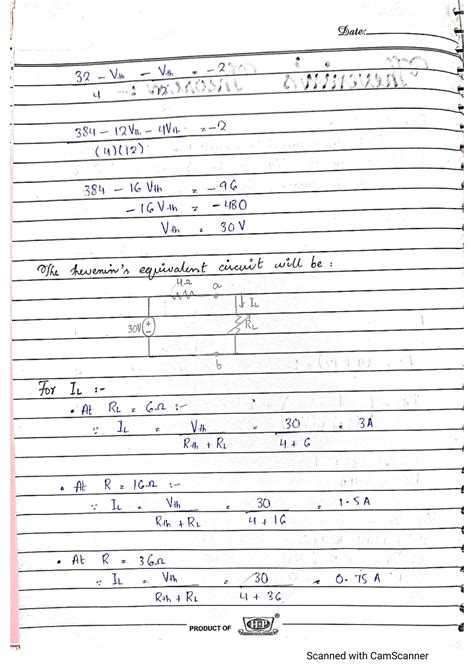 Date:
32 - Vth/4 - Vth/12 = -2
384 - 12Vth - 4Vth/(4)(12) = -2
384 - 16 Vth = -96
-16 Vth = -480
Vth = 30V
The hevenin's equivalent circuit will be :
4Ω a
↓ IL
30V + - RL
b
For IL :-
• At RL = 6Ω :-
∵ IL = Vth/Rth + RL = 30/4 + 6 = 3A
• At R = 16Ω :-
∵ IL = Vth/Rth + RL = 30/4 + 16 = 1.5A
• At R = 36Ω
∵ IL = Vth/Rth + RL = 30/4 + 36 = 0.75 A
PRODUCT OF HP
Scanned with CamScanner